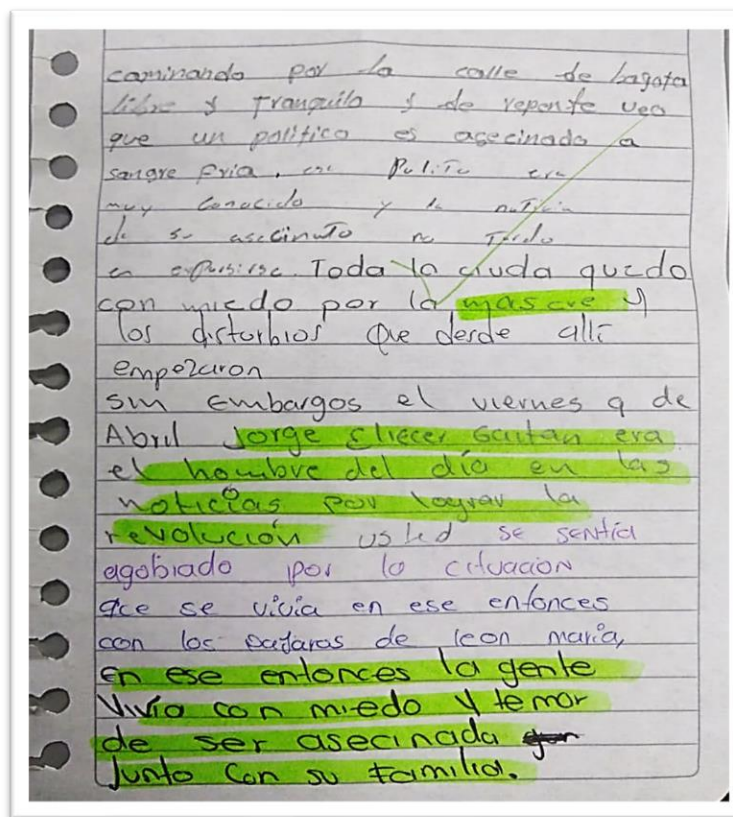 caminando por la calle de bagota
libre y tranquilo y de repente veo
que un politico es asecinado a
sangre fria, ese Politico era
muy conocido y la noticia
de su asecinato no Tardo
en Toda la ciuda quedo
con miedo por la mascre y
los disturbios que desde alli
empezaron
sin embargos el viernes 9 de
Abril Jorge Eliecer Gaitan era
el hombre del dia en las
noticias por lograr la
revolución usted se sentia
agobiado por la cituacion
que se vivia en ese entonces
con los pajaros de leon maria,
en ese entonces la gente
Vivía con miedo y temor
de ser asecinada
Junto con su familia.